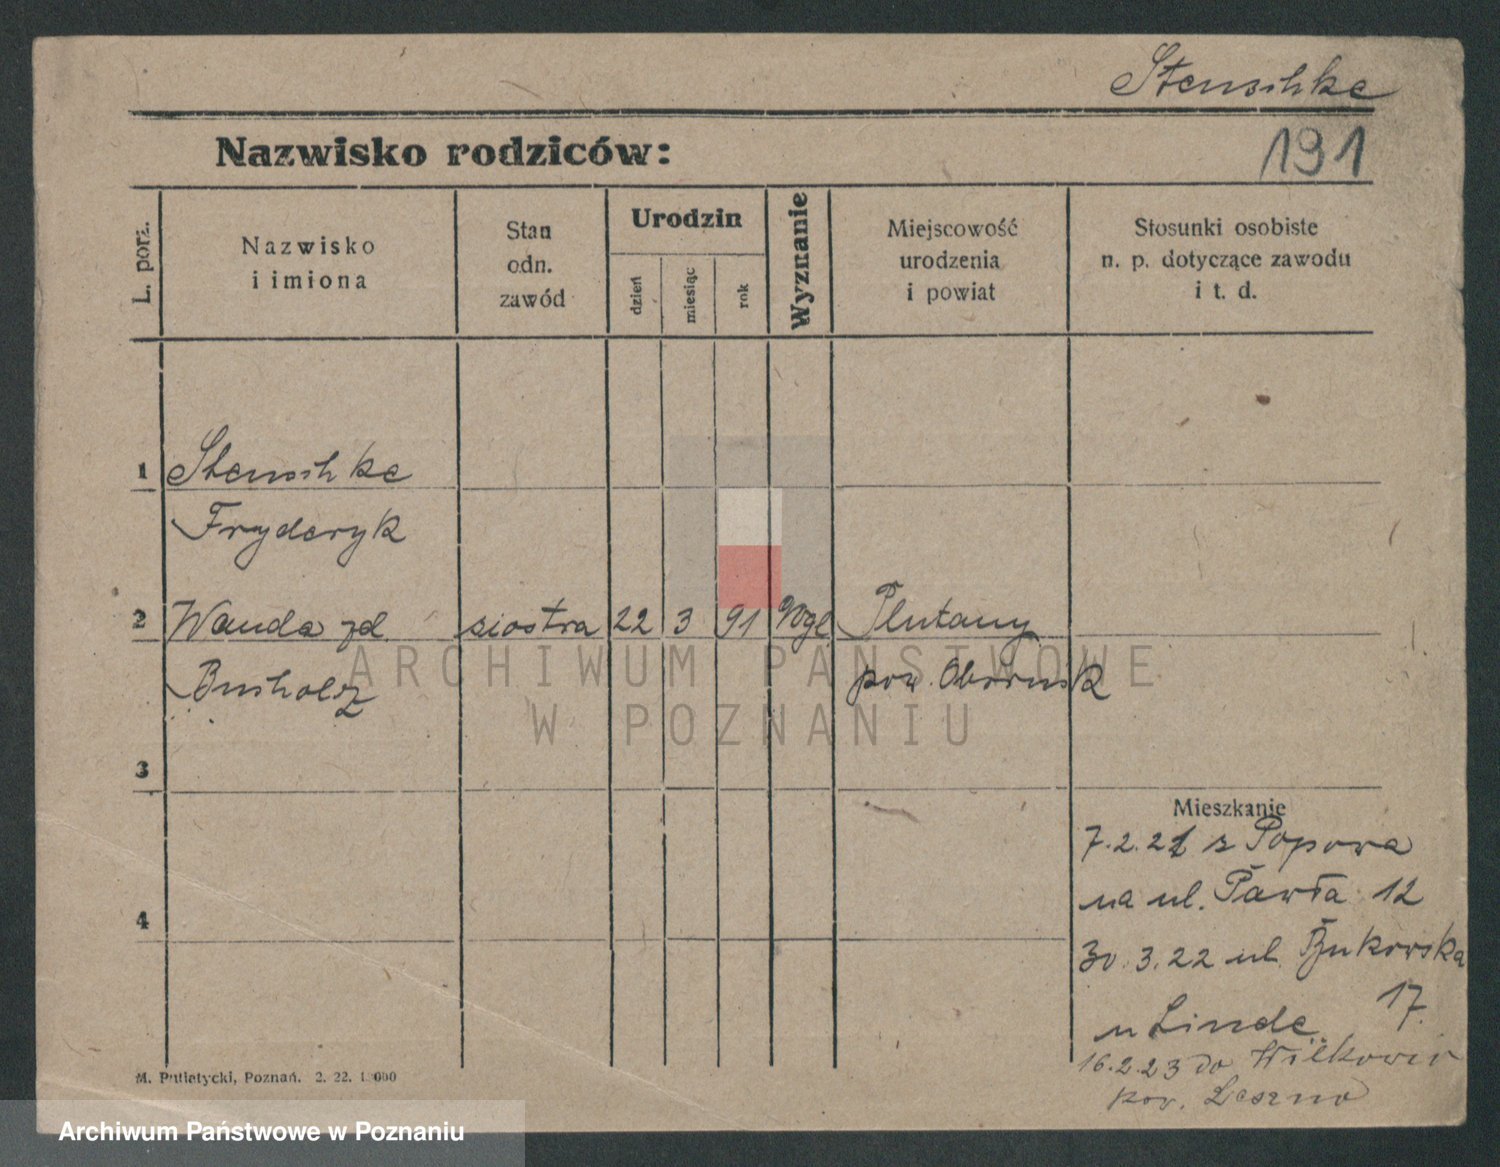 Stenschke
Nazwisko rodziców:
191
L. porz.
Nazwisko
i imiona
Stan
odn.
zawód
Urodzin
dzień
miesiąc
rok
Wyznanie
Miejscowość
urodzenia
i powiat
Stosunki osobiste
n. p. dotyczące zawodu
i t. d.
1 Stenschke
Fryderyk
2 Wanda zd siostra 22 3 91 Plutany
Busholz pow. Obornik
ARCHIWUM PAŃSTWOWE
W POZNANIU
3
Mieszkanie
7.2.21 z Popowa
na ul. Pawła 12
4
30.3.22 ul. Bukowska
17
u Linde
16.2.23 do Wilkowic
pow. Leszno
M. Putiatycki, Poznań. 2. 22.
Archiwum Państwowe w Poznaniu